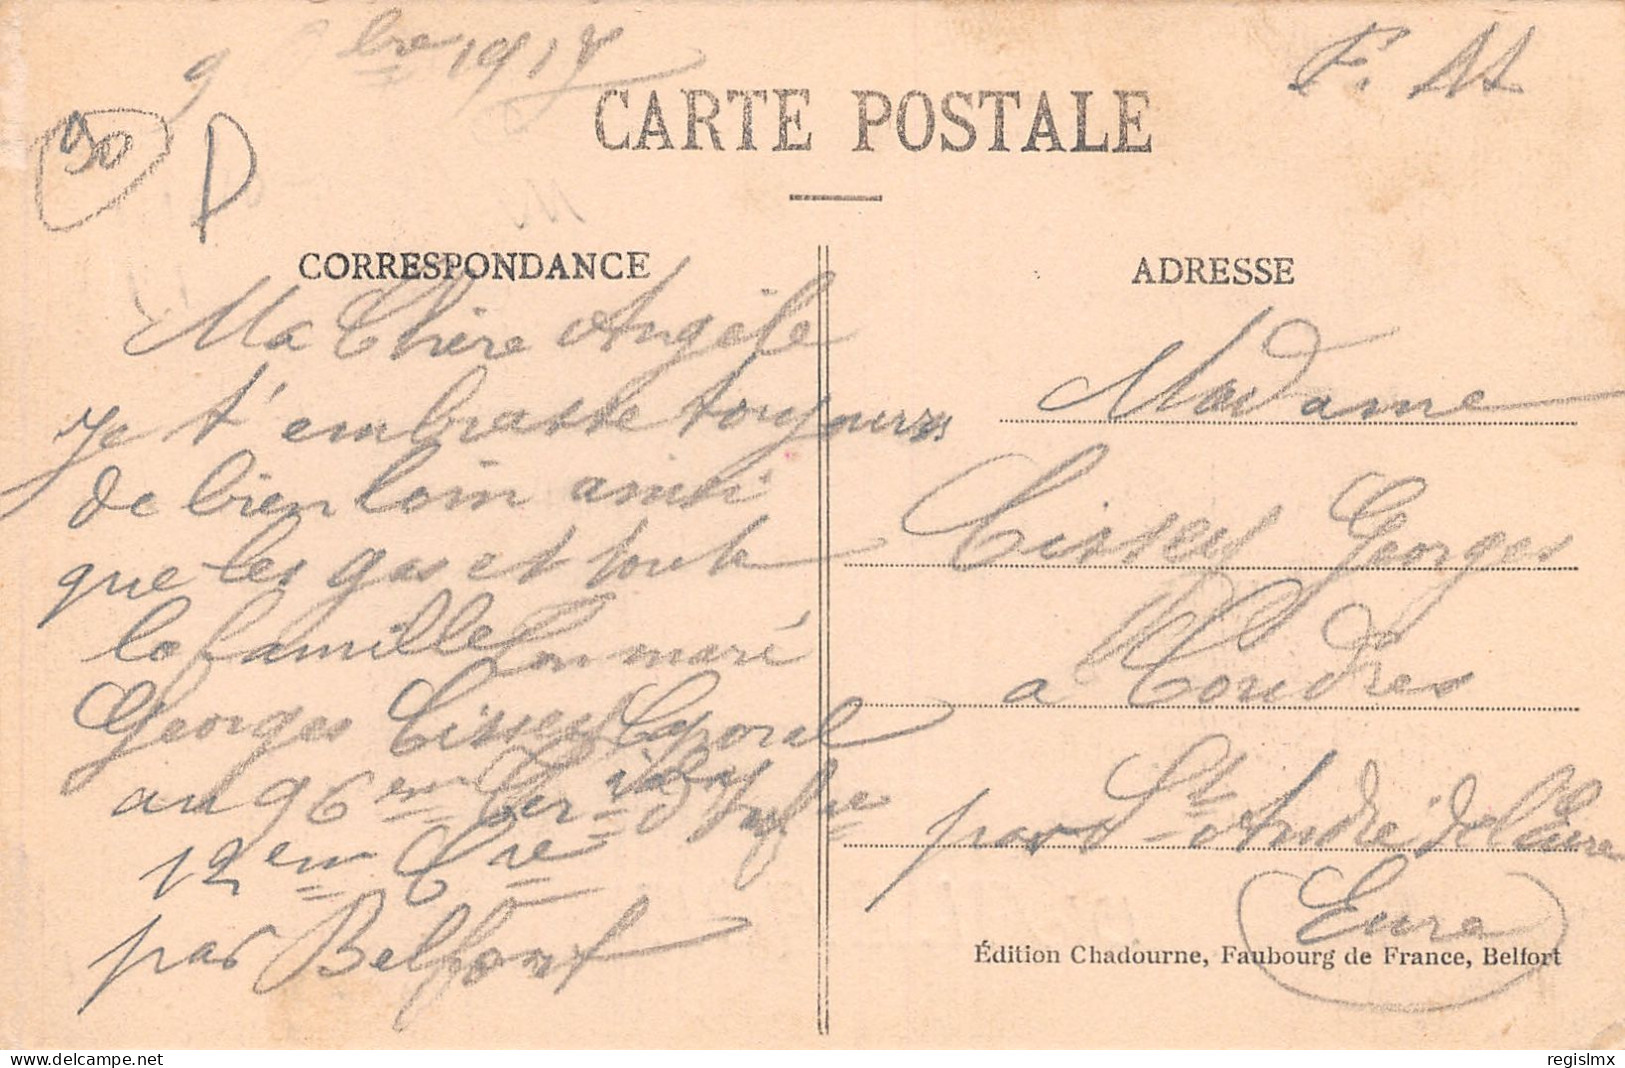 9 bre 1917
F. M
90
D
CARTE POSTALE
CORRESPONDANCE
Ma Chère Angèle
Je t'embrasse toujours
de bien loin ainsi
que les gas et toute
la famille ton maré
Georges Cissey Caporal
au 96em Ter ial d'Infrie
12em Cie
par Belfort
ADRESSE
Madame
Cissey Georges
a Coudres
par St André de l'Eure
Eure
Édition Chadourne, Faubourg de France, Belfort
regislmx
delcampe.net